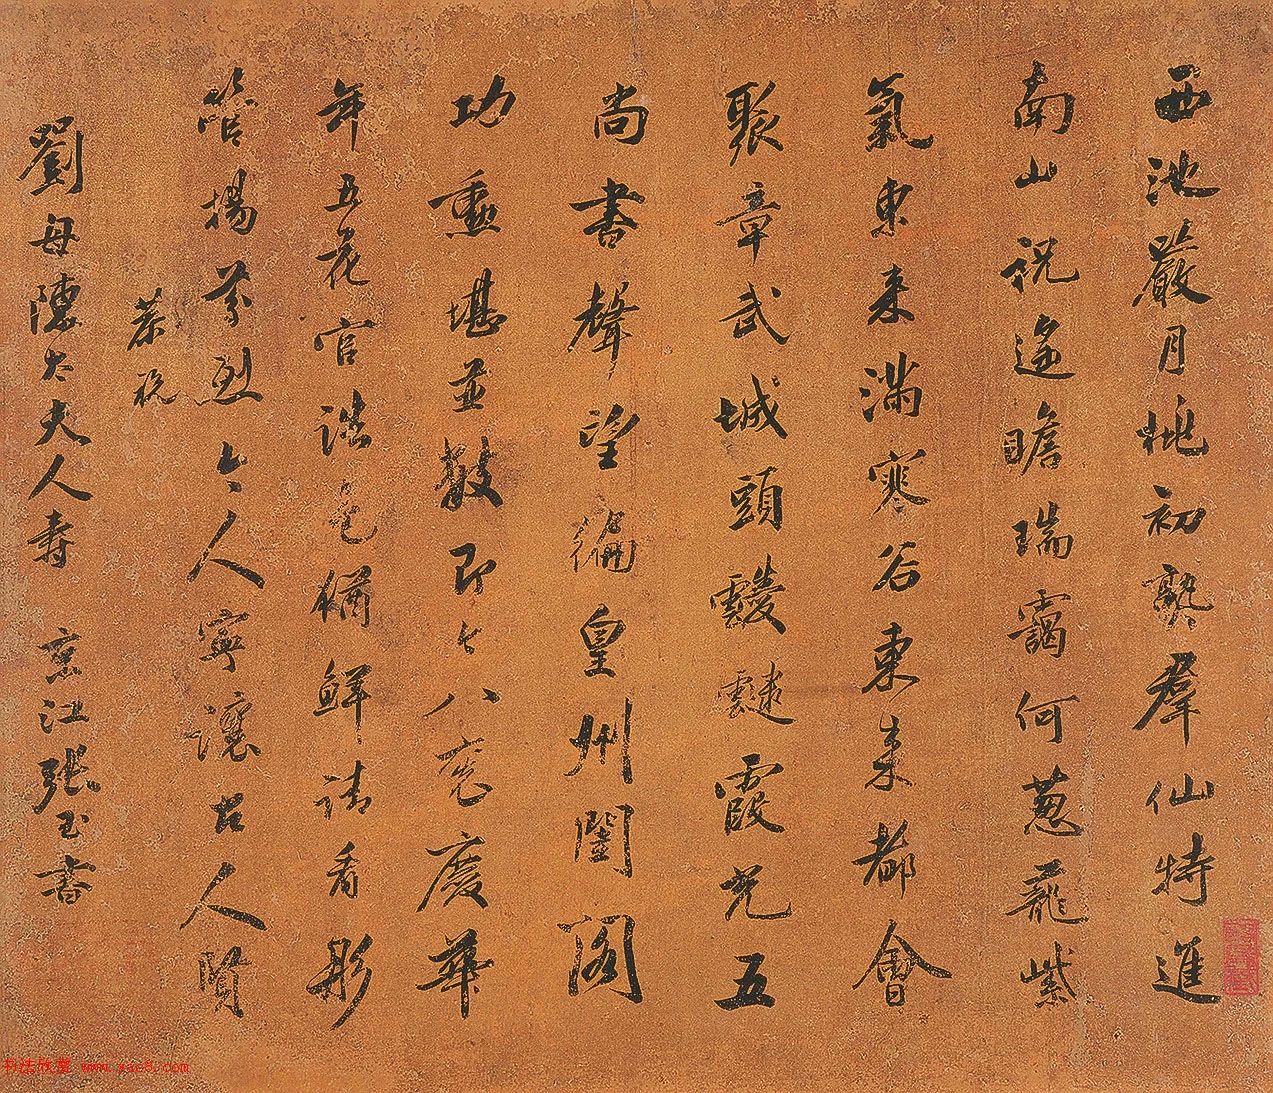 西池嚴月桃初熟羣仙特進
南山祝遙瞻瑞靄何葱蘢紫
氣東來滿寒谷東來都會
聚章武城頭靉靆霞光五
尚書聲望徧皇州閨閣
功勳堪並數即今八袠慶華
年五花官誥色猶鮮請看彤
管揚芬烈今人寧讓古人賢
恭祝
劉母陳太夫人壽 京江張玉書
书法欣赏 www.yac8.com